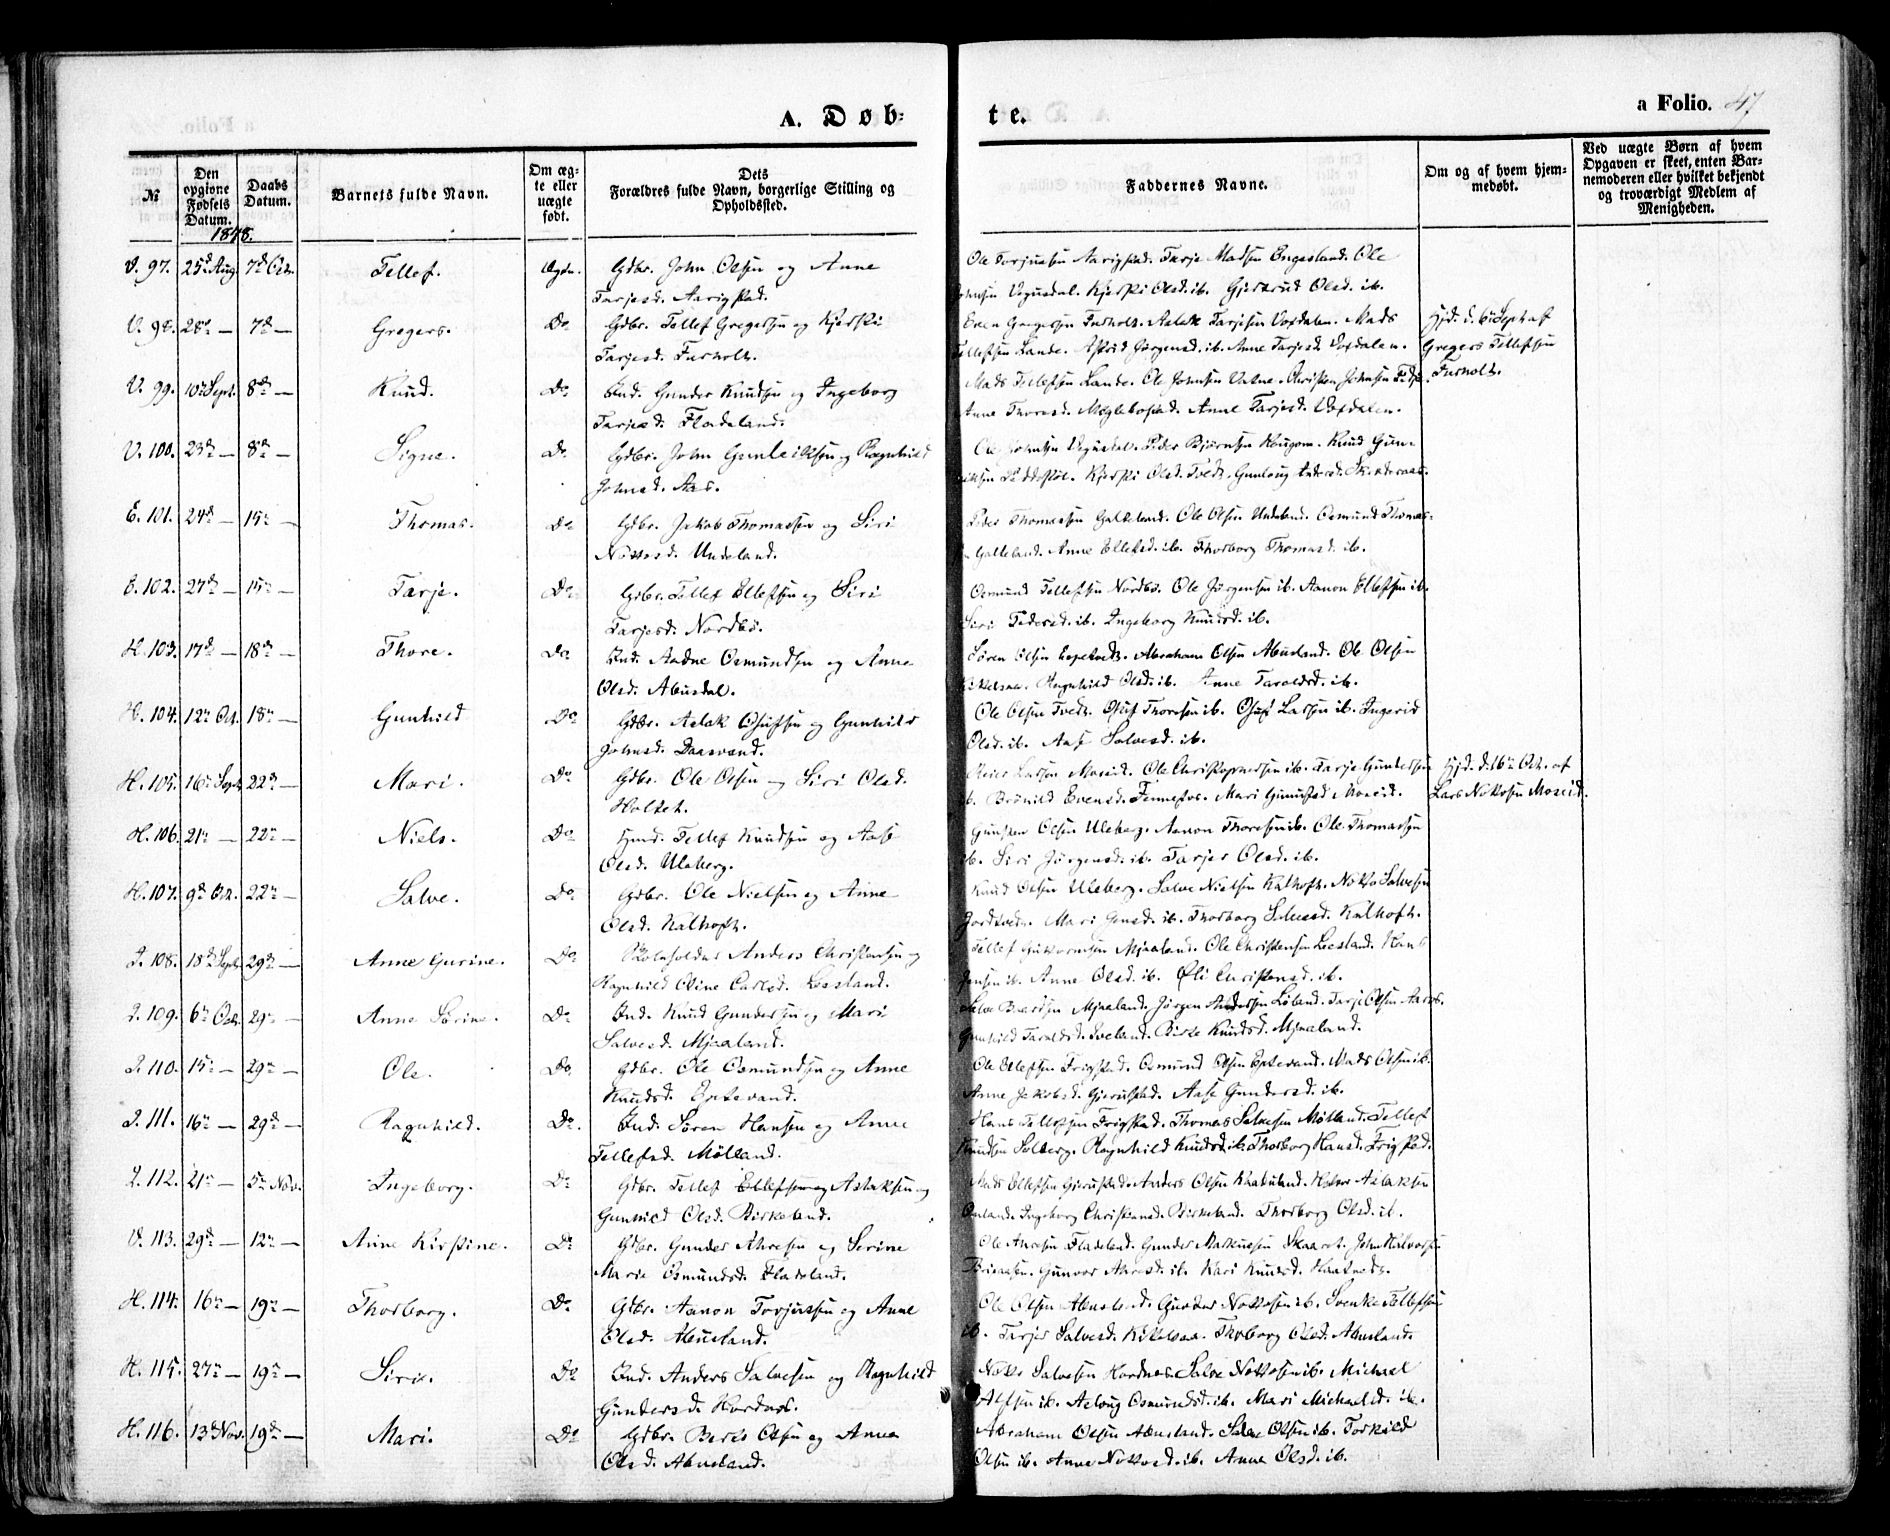 A. Døb-
te.
a Folio. 47
№
Den opgivne Fødsels Datum.
Daabs Datum.
Barnets fulde Navn.
Om ægte eller uægte født.
Dets Forældres fulde Navn, borgerlige Stilling og Opholdssted.
Faddernes Navne.
Om og af hvem hjemmedøbt.
Ved uægte Børn af hvem Opgaven er skeet, enten Barnemoderen eller hvilket bekjendt og troværdigt Medlem af Menigheden.
1878.
V. 97. 25d Aug 7d Tellef. Gdbr. John Olsen og Anne
Tarjesd. Aarigstad.
Ole Aarigstad. Tarje Madsen Engesland. Ole
Kjersti Olsd. ib. Gjertrud Olsd. ib.
V. 98. 28d — 7d — Gregers. Do Gdbr. Tellef Gregersen og Kjersti
Tarjesd. Furholt.
Even Gregersen Furholt. Aslak Tarjesen Voxdalen. Mads
Tellefsen Lande. Jørgensd. ib. Anne Tarjesd. Voxdalen.
Hjd. d. 6 Sept af
Gregers Tellefsen
Furholt.
V. 99. 10d Sept. 8d — Knud. Do Ind. Gunder Knudsen og Ingeborg
Tarjesd. Fladeland.
Mads Tellefsen Lande. Ole Johnsen Christen Johnsen
Anne Thoresd. Anne Tarjesd. Voxdalen.
V. 100. 23d — 8d — Signe. Do Gdbr. John Gunleiksen og Ragnhild
Johnsd. Aas.
Ole Johnsen Peder Bjørnsen Haugom. Knud Gun-
Kjersti Olsd. Tvedt. Gunlaug
E. 101. 24d — 15de — Thomas. Do Gdbr. Jakob Thomassen og Siri
Undeland.
Peder Thomassen Galteland. Ole Olsen Undeland. Osmund Thomas-
Galteland. Anne Ellefsd. ib. Thorborg Thomasd. ib.
E. 102. 27d — 15de — Tarje. Do Gdbr. Tellef Ellefsen og Siri
Tarjesd. Nordbø.
Osmund Tellefsen Nordbø. Ole Jørgensen ib. Aanon Ellefsen ib.
Siri Pedersd. ib. Ingeborg Knudsd. ib.
H. 103. 17d — 18d — Thore. Do Ind. Aadne Osmundsen og Anne
Olsd. Abusdal.
Søren Olsen Abraham Olsen Abusland. Ole Olsen
Ragnhild Olsd. ib. Anne Taroldsd. ib.
H. 104. 12te Oct. 18de — Gunhild Do Gdbr. Aslak Osufsen og Gunhild
Johnsd. Daasvand.
Ole Olsen Tvedt. Osuf Thoresen ib. Osuf Larsen ib. Ingerid
Olsd. ib. Aase Salvesd. ib.
H. 105. 16de Sept. 22d — Mari. Do Gdbr. Ole Olsen og Siri Olsd.
Holtet.
Larsen Moseid. Ole Christophersen ib. Tarje Gundersen
ib. Brønild Evensd. Mari Moseid.
Hjd. d. 16de Oct. af
Lars Nottosen Moseid.
H. 106. 21de — 22de — Niels. Do Hmd. Tellef Knudsen og Aase
Olsd. Uleberg.
Olsen Uleberg. Aanon Thoresen ib. Ole Thomassen
ib. Siri Jørgensd. ib. Tarjer Olsd. ib.
H. 107. 9d Oct. 22de — Salve. Do Gdbr. Ole Nielsen og Anne
Olsd. Kalhoft.
Knud Olsen Uleberg. Salve Nielsen Kalhoft. Notto Salvesen
Mari ib. Thorborg Kalhoft.
I. 108. 18de Sept. 29d — Anne Gurine. Do Anders Christensen og
Ragnhild Oline Carlsd. Loesland.
Tellef Mjaaland. Ole Christensen Loesland. Hans
Jensen ib. Anne Olsd. ib. Christensd. ib.
I. 109. 6te Oct. 29de — Anne Sørine. Do Ind. Knud Gundersen og Mari
Salvesd. Mjaaland.
Salve Mjaaland. Jørgen Andersen Løland. Tarje Olsen
Gunhild Taroldsd. Birte Knudsd. Mjaaland.
I. 110. 15de — 29de — Ole. Do Gdbr. Ole Osmundsen og Anne
Knudsd. Eptevand.
Ole Ellefsen Frigstad. Osmund Olsen Eptevand. Mads Olsen ib.
Anne Jakobsd. Gjerustad. Aase Gundersd. ib.
I. 111. 16de — 29de — Ragnhild. Do. Ind. Søren Hansen og Anne
Tellefsd. Mølland.
Hans Tellefsen Frigstad. Thomas Salvesen Mølland. Tellef
Knudsen Solberg. Ragnhild Knudsd. ib. Thorborg Hansd. Frigstad.
I. 112. 21de — 5te Nov. Ingeborg. Do Gdbr. Tellef Ellefsen og Aslaksen og
Gunhild Olsd. Birkeland.
Mads Ellefsen Gjerustad. Anders Olsen Aslaksen
Ingeborg Christensd. Birkeland. Thorborg Olsd. ib.
V. 113. 29de — 12te — Anne Kirstine. Do Gdbr. Gunder Ahresen og Serine
Marie Osmundsd. Fladeland.
Ole Ahresen Fladeland. Gunder Markussen Skaaret. John Halvorsen
Gunvor Ahresd. ib. Kari Knudsd.
H. 114. 16de — 19de — Thorborg. Do Gdbr. Aanon Torjussen og Anne
Olsd. Abusland.
Ole Olsen Abusland. Gunder Nottosen ib. Svenke Tellefsen
ib. Tarjer Salvesd. Thorborg Olsd. Abusland.
H. 115. 27de — 19de — Siri. Do Ind. Anders Salvesen og Ragnhild
Gundersd. Hordnes.
Notto Salvesen Hordnes. Salve Nottosen ib. Michael
ib. Aslaug Osmundsd. ib. Mari Michaelsd. ib.
H. 116. 13de Nov. 19de — Mari. Do Gdbr. Olsen og Anne
Olsd. Abusland.
Abraham Olsen Abusland. Salve Olsen ib. Torkild
Olsen ib. Anne ib. Anne Olsd. ib.